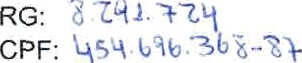 RG: 8.291.724
CPF: 454.696.368-87